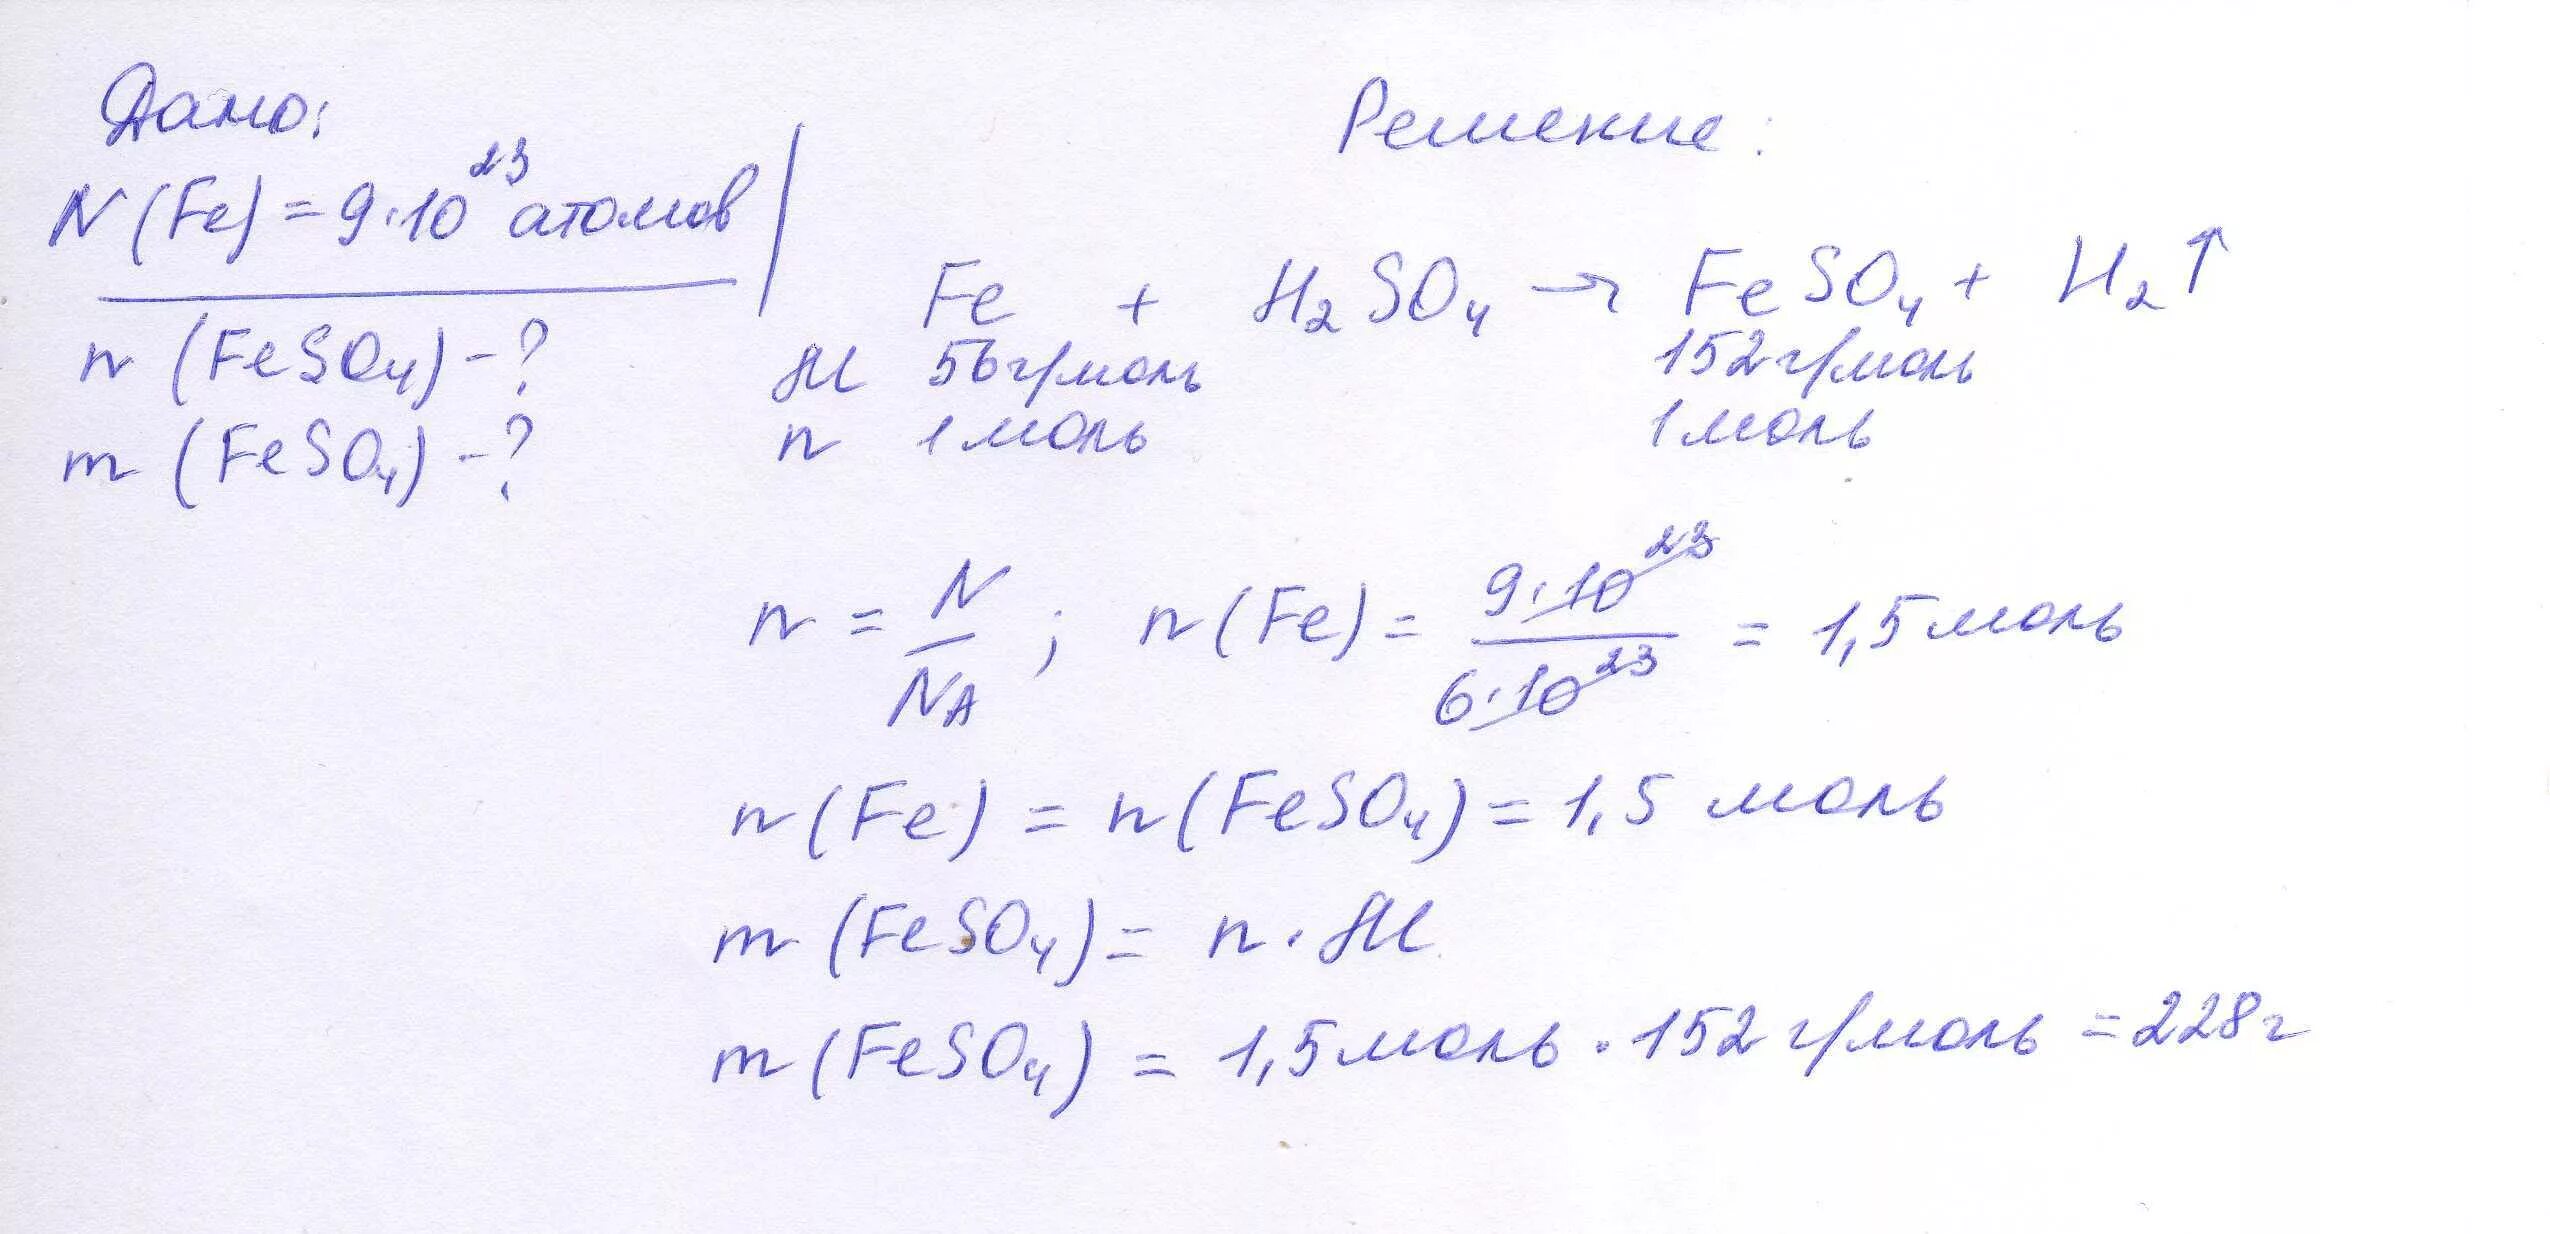 Дано:
N (Fe) = 9·10²³ атомов
n (FeSO₄) - ?
m (FeSO₄) - ?
Решение:
Fe + H₂SO₄ → FeSO₄ + H₂↑
M 56г/моль 152г/моль
n 1моль 1моль
n = N/NA ; n(Fe) = 9·10²³/6·10²³ = 1,5моль
n(Fe) = n(FeSO₄) = 1,5 моль
m (FeSO₄) = n · M
m (FeSO₄) = 1,5моль · 152г/моль = 228г